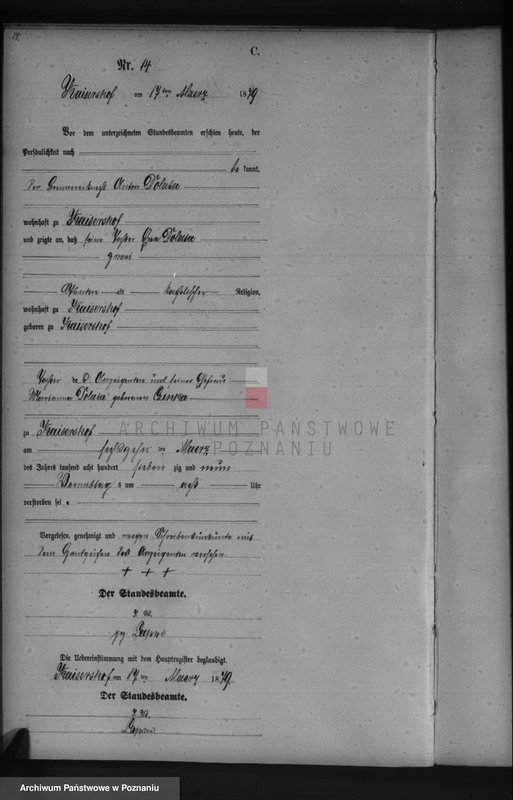 14.
C.
Nr. 14.
Kaisershof am 17ten Maerz 1879
Vor dem unterzeichneten Standesbeamten erschien heute, der
Persönlichkeit nach
be kannt,
der Anton Dolata
wohnhaft zu Kaisershof
und zeigte an, daß seine Tochter Dolata
zwei
Wochen alt katholischer Religion,
wohnhaft zu Kaisershof
geboren zu Kaisershof
Tochter des Anzeigenden und seiner Ehefrau
Marianna Dolata geborenen
zu Kaisershof
ARCHIWUM PAŃSTWOWE
W POZNANIU
am sechszehnten Maerz
des Jahres tausend acht hundert sieben zig und neun
Vormittag s um acht Uhr
verstorben sei.
Vorgelesen, genehmigt und wegen Schreibensunkunde mit
dem Handzeichen des Anzeigenden versehen.
+ + +
Der Standesbeamte.
Die Uebereinstimmung mit dem Hauptregister beglaubigt.
Kaisershof am 17ten Maerz 1879.
Der Standesbeamte.
Archiwum Państwowe w Poznaniu